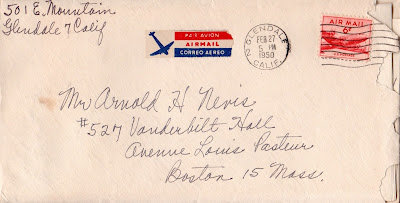 501 E. Mountain
Glendale 7 Calif
PAR AVION
AIRMAIL
CORREO AEREO
GLENDALE
FEB 27
5 PM
1950
2 CALIF.
AIR MAIL
6¢
Mr Arnold H Nevis
#527 Vanderbilt Hall
Avenue Louis Pasteur
Boston 15 Mass.